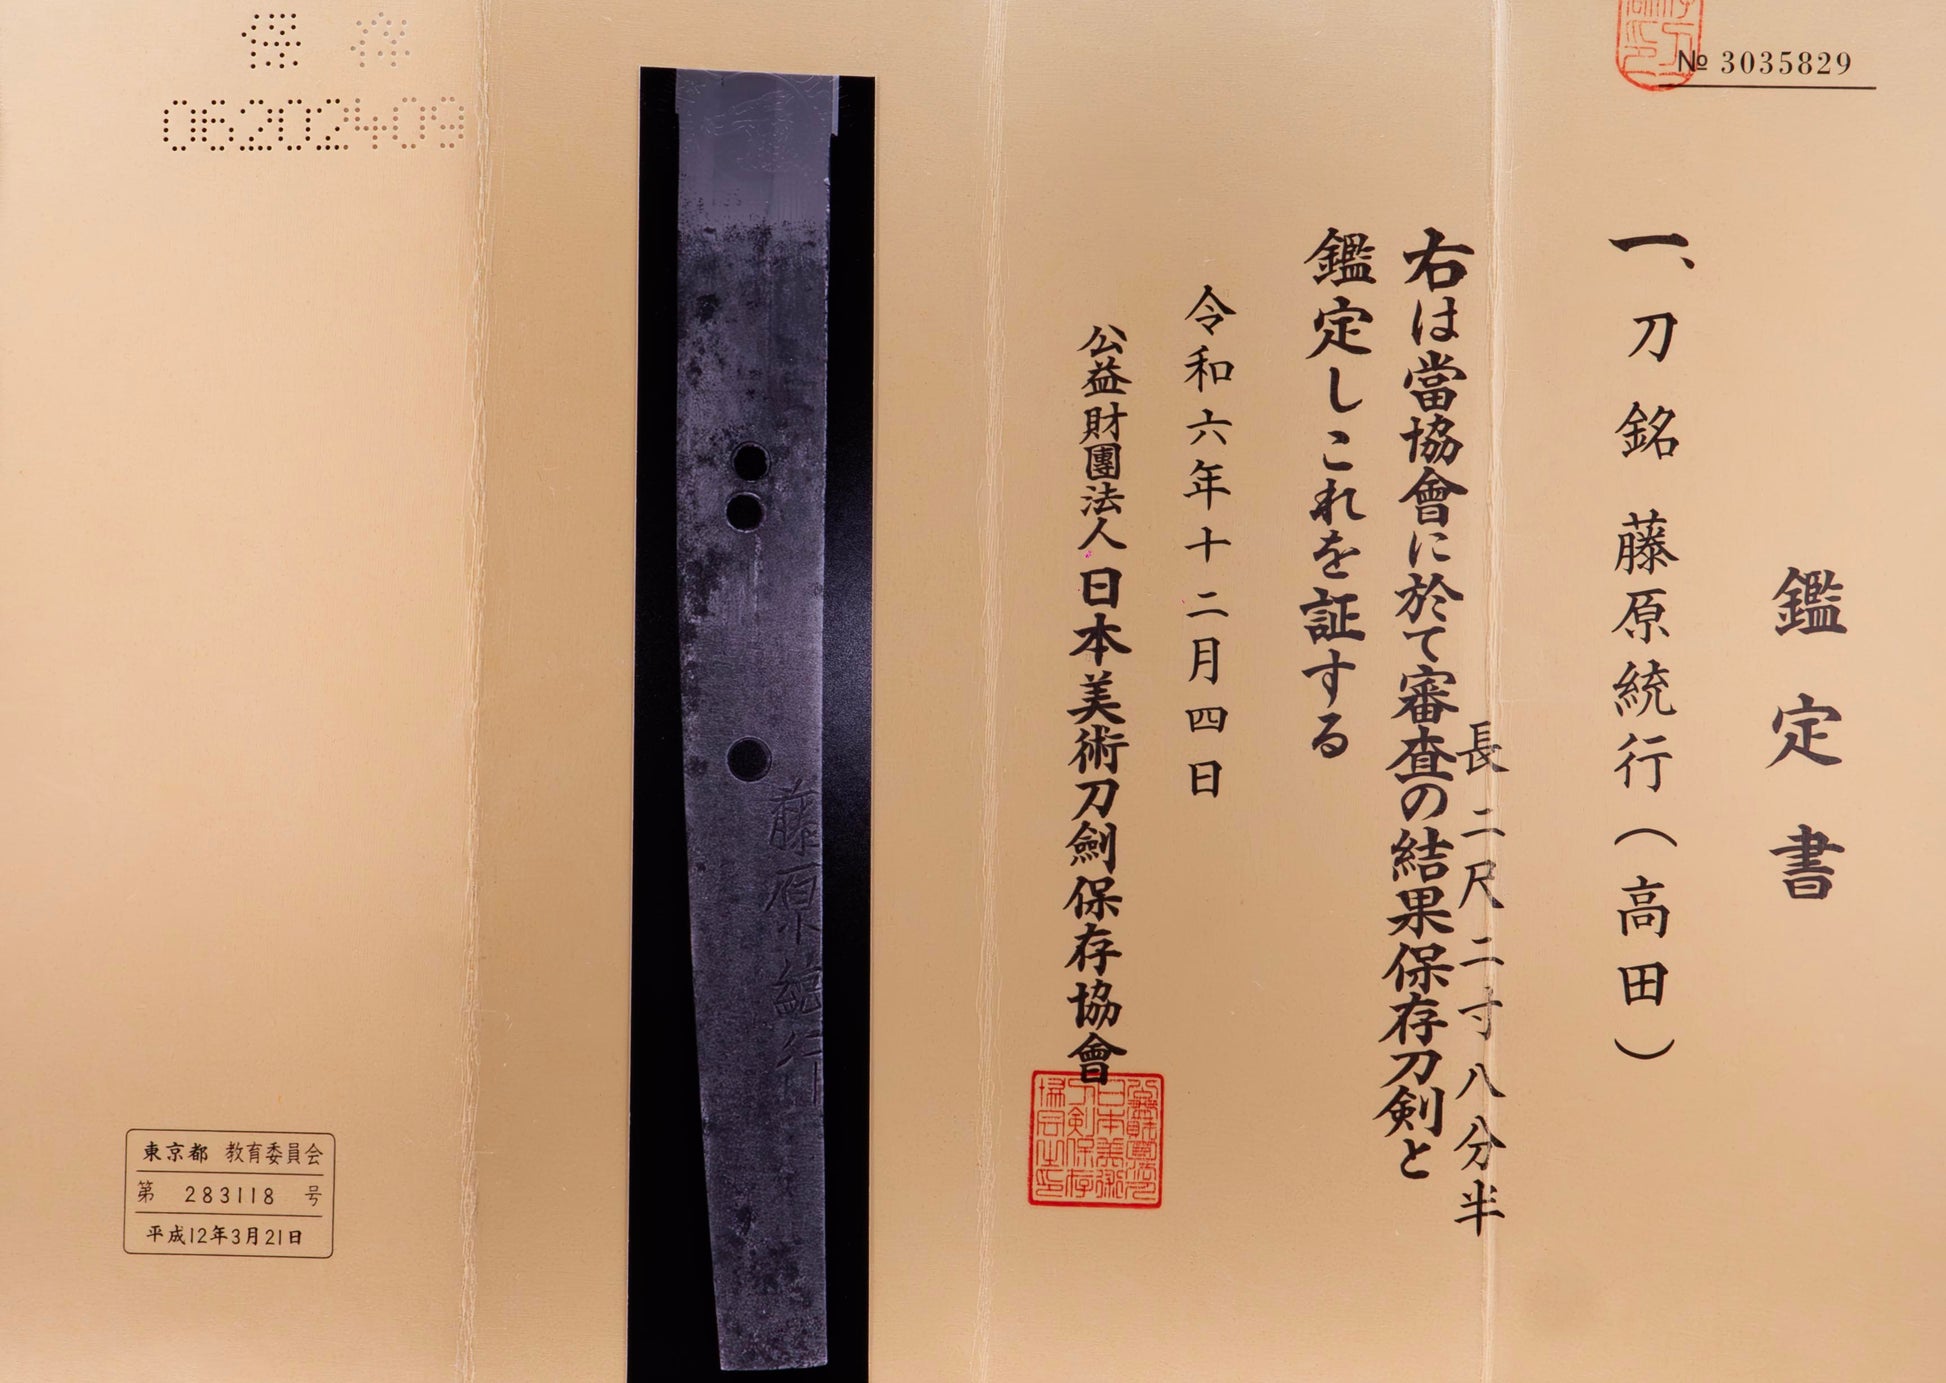 № 3035829
鑑定書
一、刀 銘 藤原統行(高田)
長 二尺二寸八分半
右は當協會に於て審査の結果保存刀剣と
鑑定しこれを証する
令和六年十二月四日
公益財團法人 日本美術刀劍保存協會
藤原統行
保存
06202409
東京都 教育委員会
第 283118 号
平成12年3月21日